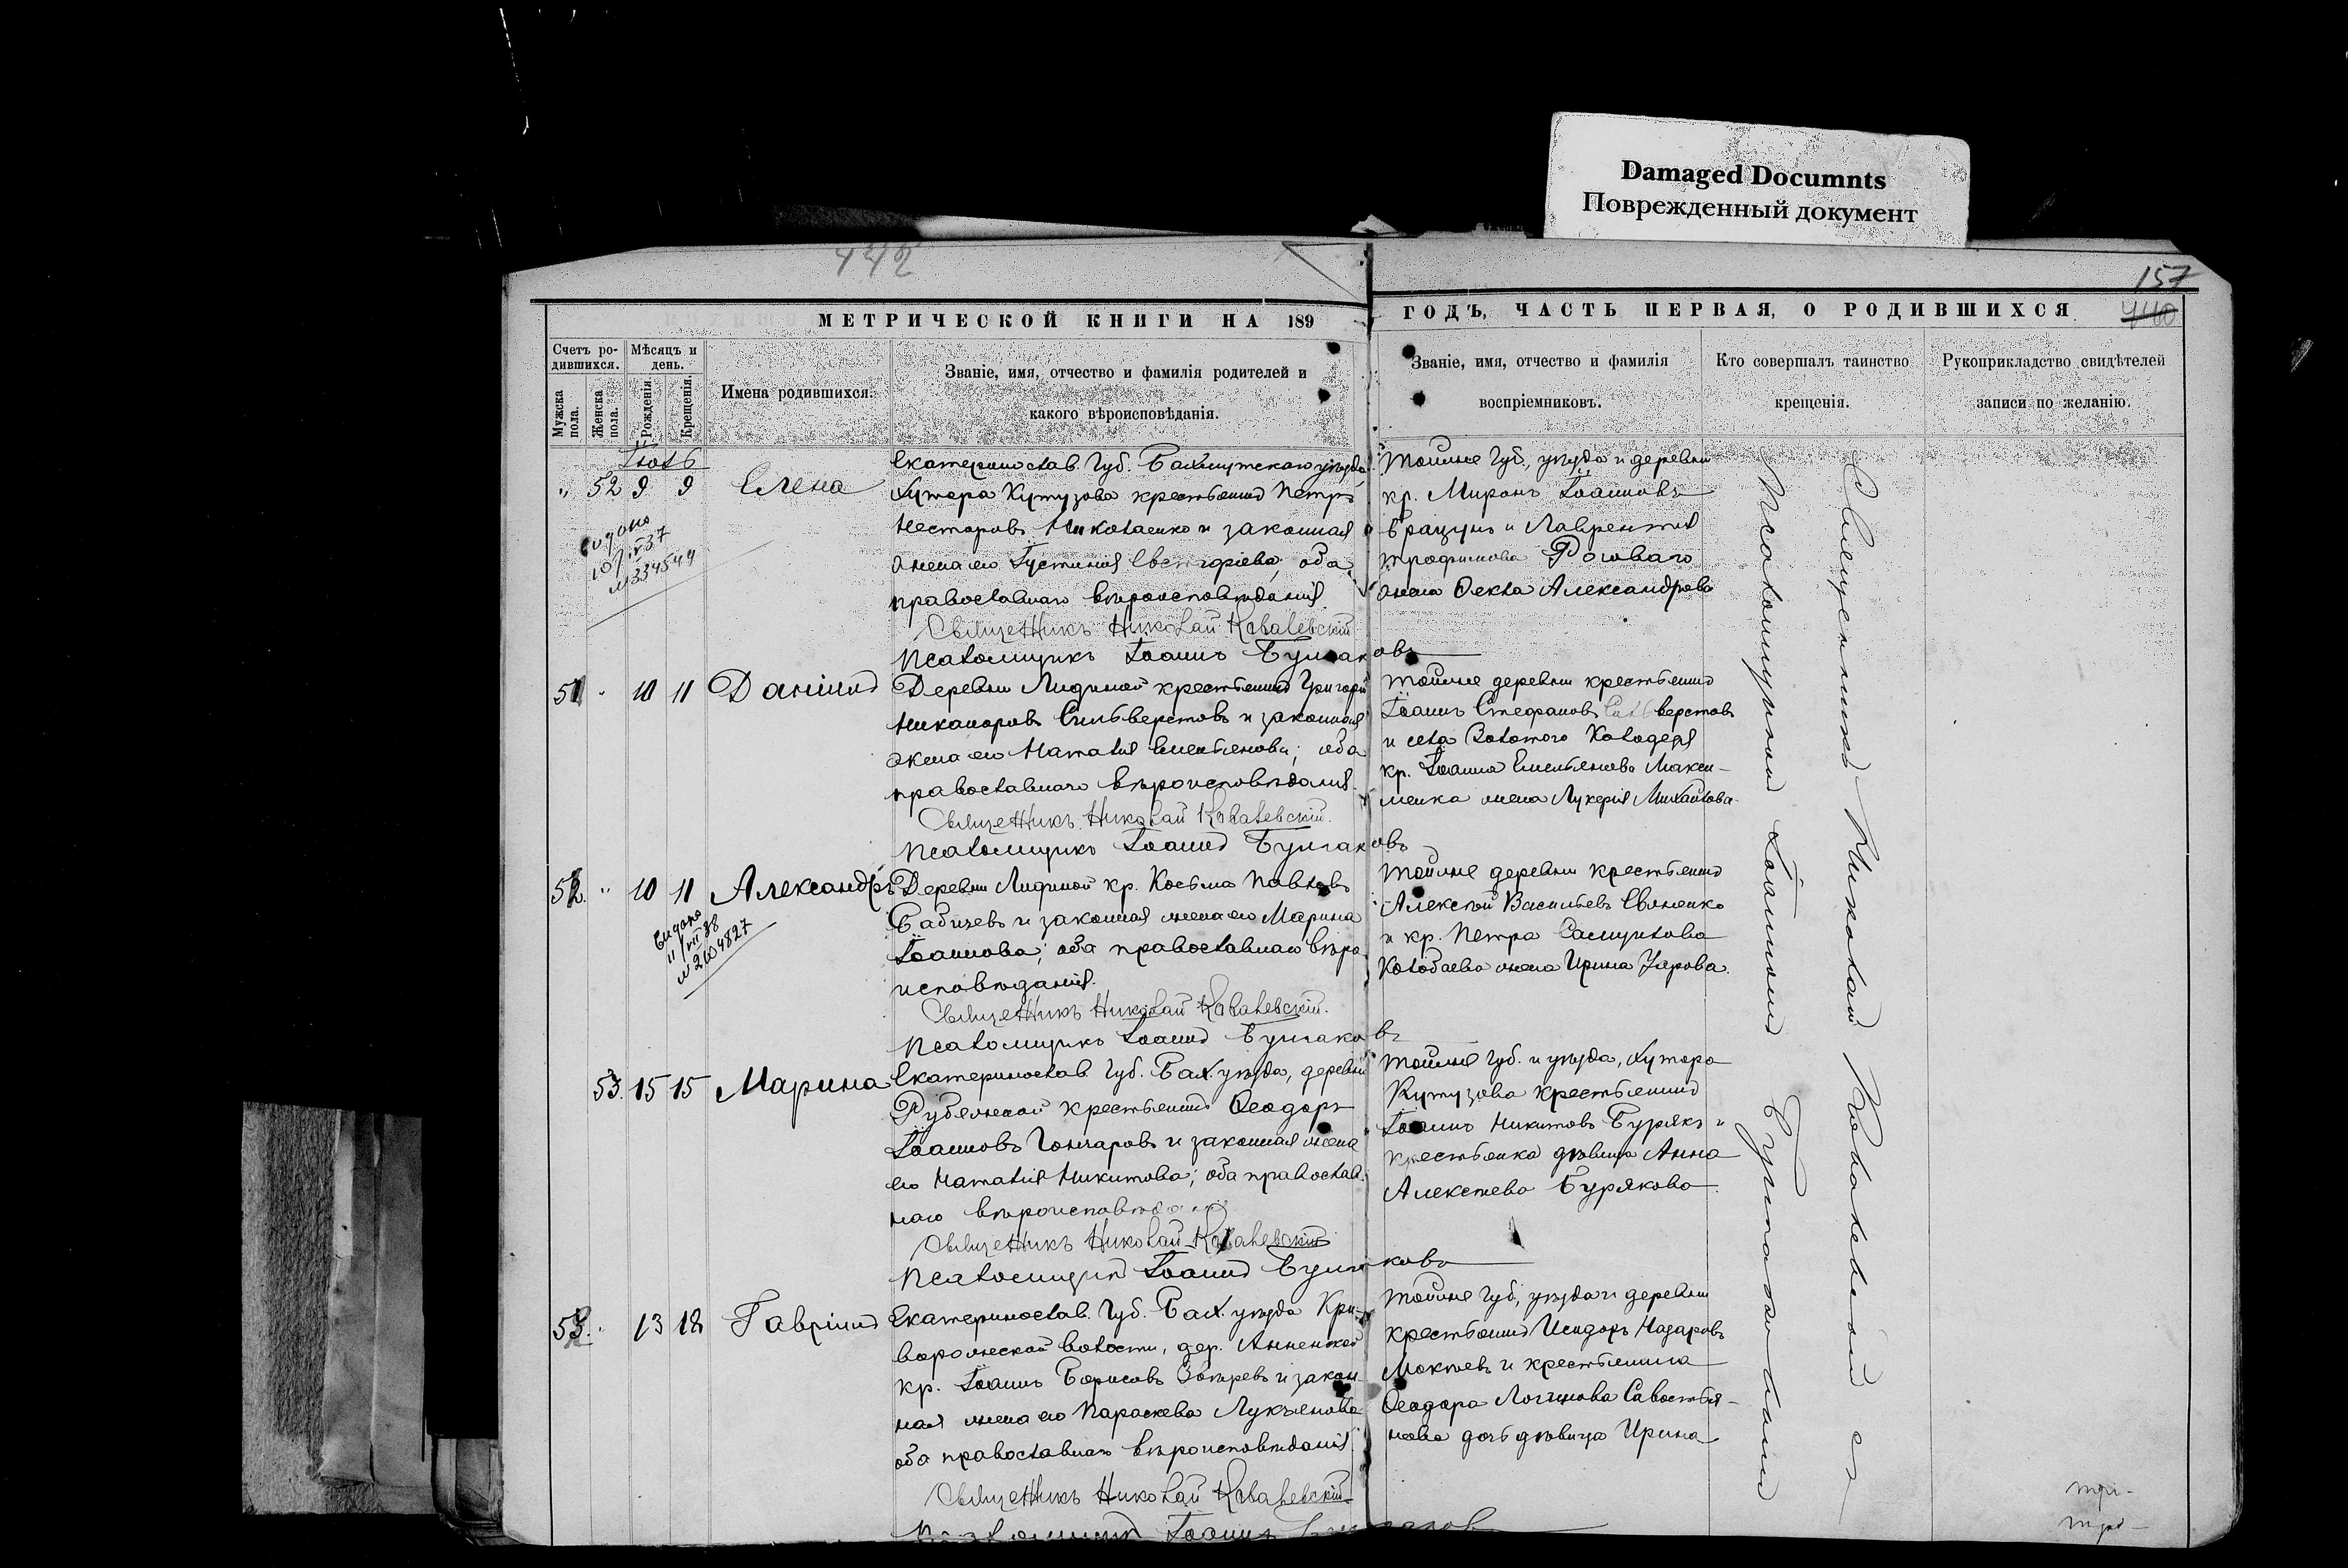 Damaged Documnts
Поврежденный документ
442
157
440
МЕТРИЧЕСКОЙ КНИГИ НА 189
ГОДЪ, ЧАСТЬ ПЕРВАЯ, О РОДИВШИХСЯ
Счетъ ро-
дившихся.
Мѣсяцъ и
день.
Мужска
пола.
Женска
пола.
Рожденія.
Крещенія.
Имена родившихся.
Званіе, имя, отчество и фамилія родителей и
какого вѣроисповѣданія.
Званіе, имя, отчество и фамилія
воспріемниковъ.
Кто совершалъ таинство
крещенія.
Рукоприкладство свидѣтелей
записи по желанію.
" 52 9 9 Елена
Екатеринослав. Губ. Бахмутскаго уѣзда
Хутора Кутузова крестьянинъ Петръ
Несторовъ Николаенко и законная
жена его Іустинія; оба
православнаго вѣроисповѣданія.
Священникъ Николай Ковалевскій
Псаломщикъ Іоаннъ Булгаковъ
Тойже Губ., уѣзда и деревни
кр. Миронъ Іоанновъ
и Лаврентія
Трофимова Роговаго
жена Ѳекла Александрова
видано
№334549
51 " 10 11 Даніилъ
Деревни Лидиной крестьянинъ Григорій
Никаноровъ Сильверстовъ и законная
жена его Наталія Емельянова; оба
православнаго вѣроисповѣданія.
Священникъ Николай Ковалевскій.
Псаломщикъ Іоаннъ Булгаковъ
Тойже деревни крестьянинъ
Іоаннъ Стефановъ Сильверстовъ
и села Золотого Колодезя
кр. Іоанна Емельянова Макси-
менка жена Лукерія Михайлова.
52. " 10 11 Александръ
Деревни Лидиной кр. Косьма Павловъ
Бабичевъ и законная жена его Марина
Іоаннова; оба православнаго вѣро
исповѣданія.
Священникъ Николай Ковалевскій.
Псаломщикъ Іоаннъ Булгаковъ
Тойже деревни крестьянинъ
Алексѣй Васильевъ
и кр. Петра Самуилова
Колобаева жена Ирина
видано
11/VII 38
№ 2104827
53. 15 15 Марина
Екатеринослав. Губ. Бах. уѣзда, деревни
крестьянинъ Ѳеодоръ
Іоанновъ Гончаровъ и законная жена
его Наталія Никитова; оба православ-
наго вѣроисповѣданія
Священникъ Николай Ковалевскій
Псаломщикъ Іоаннъ Булгаковъ
Тойже Губ. и уѣзда, Хутора
Кутузова крестьянинъ
Іоаннъ Никитовъ Бурякъ и
крестьянка дѣвица Анна
Алексѣева Бурякова.
53. " 13 18 Гавріилъ
Екатеринослав. Губ. Бах. уѣзда Кри-
волости, дер. Анненской
кр. Іоаннъ Борисовъ и закон-
ная жена его Параскева Лукьянова
оба православнаго вѣроисповѣданія.
Священникъ Николай Ковалевскій
Псаломщикъ Іоаннъ Булгаковъ
Тойже Губ., уѣзда и деревни
крестьянинъ Исидоръ Назаровъ
Мокѣевъ и крестьянина
Ѳеодора Логинова Савостья-
нова дочь дѣвица Ирина
Священникъ Николай Ковалевскій съ
Псаломщикомъ Іоанномъ Булгаковымъ